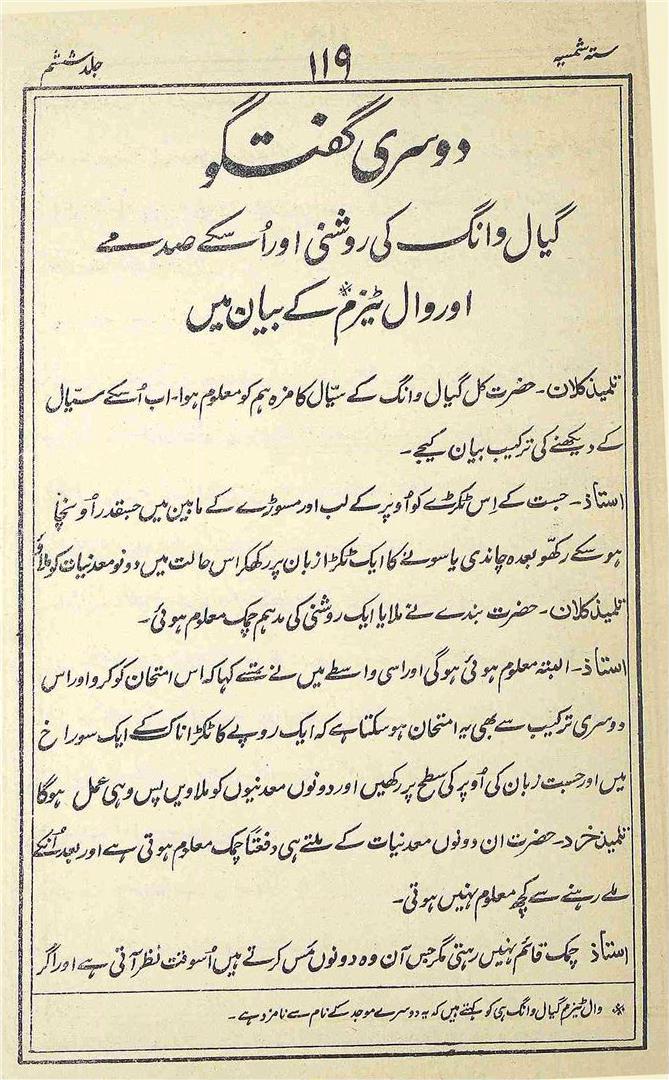 ستہ شمسیہ ۱۱۹ جلد ششم
دوسری گفتگو
گیال وانگ کی روشنی اور اُسکے صدمے
اور وال ٹیزم* کے بیان میں
تلمیذ کلان۔ حضرت کل گیال وانگ کے سیّال کا مزہ ہم کو معلوم ہوا۔ اب اُسکے سیّال
کے دیکھنے کی ترکیب بیان کیجے۔
استاذ۔ جست کے اِس ٹکڑے کو اُوپر کے لب اور مسوڑے کے مابین میں جسقدر اُونچا
ہو سکے رکھّو بعدہ چاندی یا سونے کا ایک ٹکڑا زبان پر رکھکر اس حالت میں دونو معدنیات کو ملاؤ
تلمیذ کلان۔ حضرت بندے نے ملایا ایک روشنی کی مدہم چمک معلوم ہوئی۔
استاذ۔ البتہ معلوم ہوئی ہوگی اور اسی واسطے میں نے تمسے کہا کہ اس امتحان کو کرو اور اس
دوسری ترکیب سے بھی یہ امتحان ہو سکتا ہے کہ ایک روپے کا ٹکڑا ناک کے ایک سوراخ
میں اور جست زبان کی اُوپر کی سطح پر رکھیں اور دونوں معدنیوں کو ملاویں پس وہی عمل ہوگا
تلمیذ خرد۔ حضرت ان دونوں معدنیات کے ملتے ہی دفعتاً چمک معلوم ہوتی ہے اور بعد اُنکے
ملے رہنے سے کچھ معلوم نہیں ہوتی۔
استاذ چمک قائم نہیں رہتی مگر جس آن وہ دونوں مَس کرتے ہیں اُسوقت نظر آتی ہے اور اگر
* وال ٹیزم گیال وانگ ہی کو کہتے ہیں کہ یہ دوسرے موجد کے نام سے نامزد ہے۔